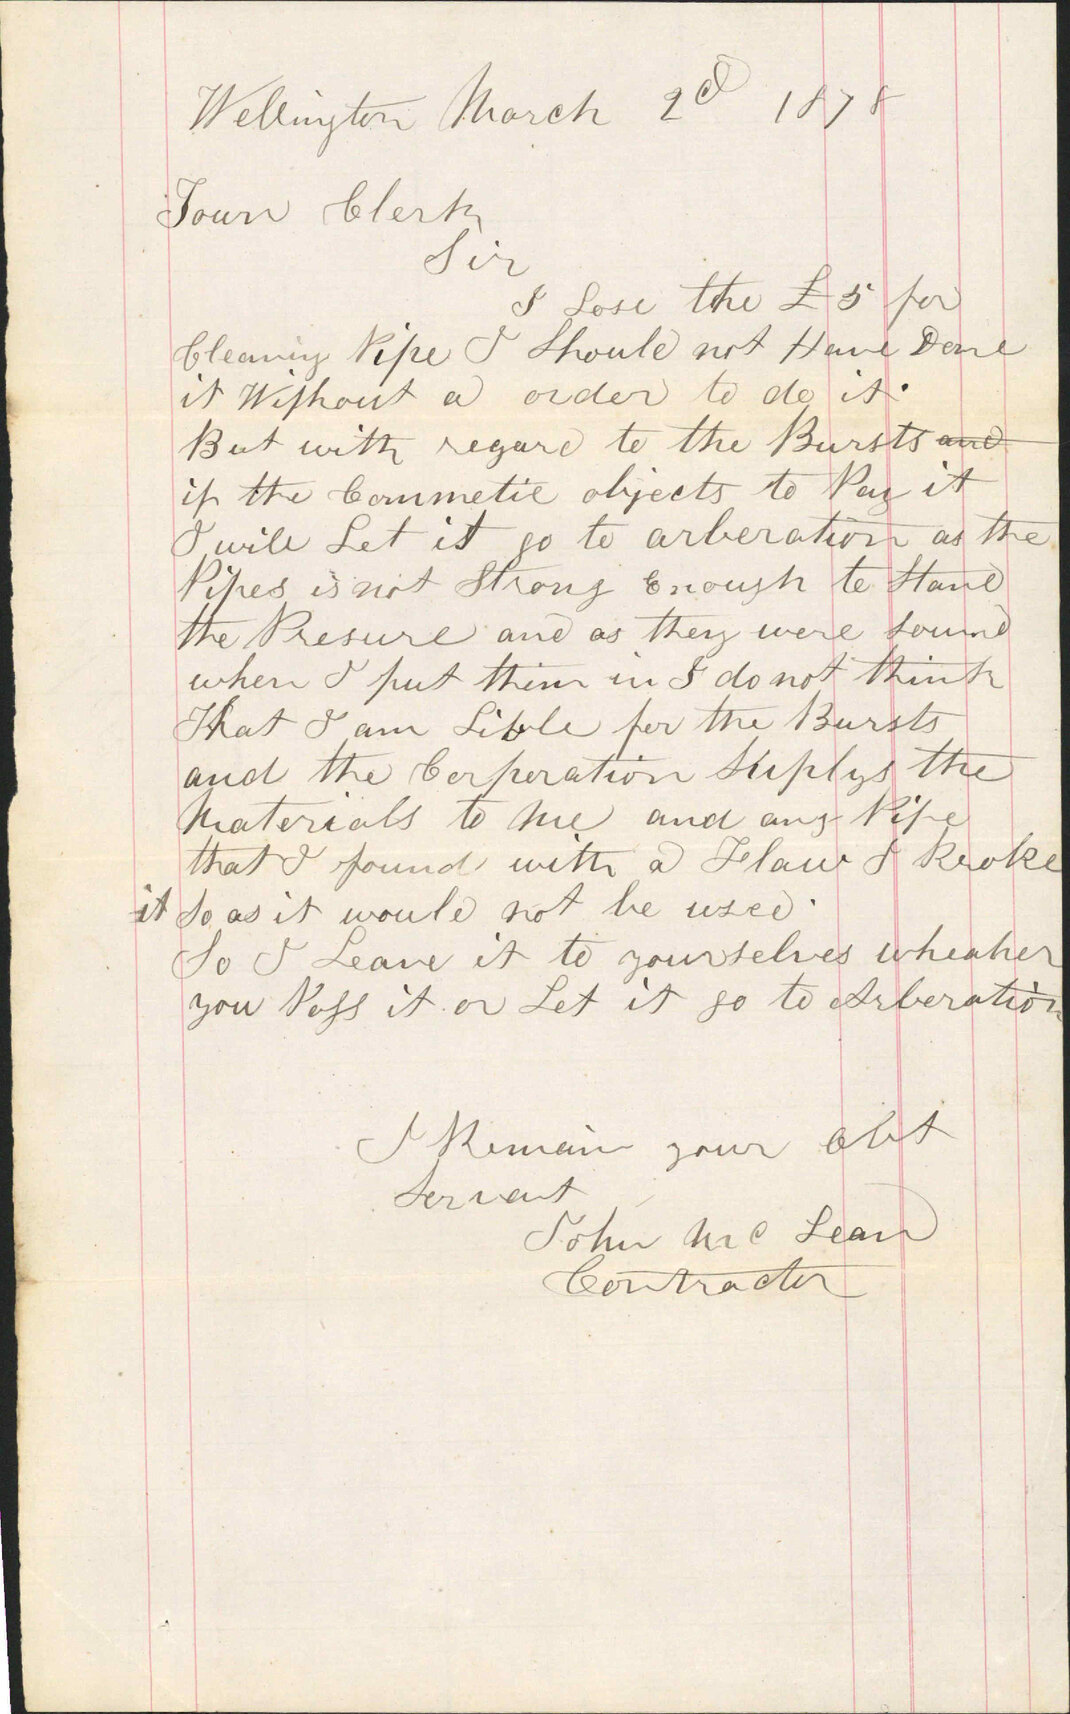 Wellington March 2d 1878
Town Clerk
Sir
I Lose the £5 for
Cleaning Pipe I Should not Have Done
it Without a order to do it.
But with regard to the Bursts and
if the Commetie objects to Pay it
I will Let it go to arberation as the
Pipes is not Strong Enough to Stand
the Presure and as they were sound
when I put them in I do not think
That I am Lible for the Bursts
and the Corporation Suplys the
Materials to Me and any Pipe
that I found with a Flaw I Broke
it So as it would not be used.
So I Leave it to yourselves wheaher
you Pass it or Let it go to Arberation
I Remain your Obt
Servant
John Mc Lean
Contractor